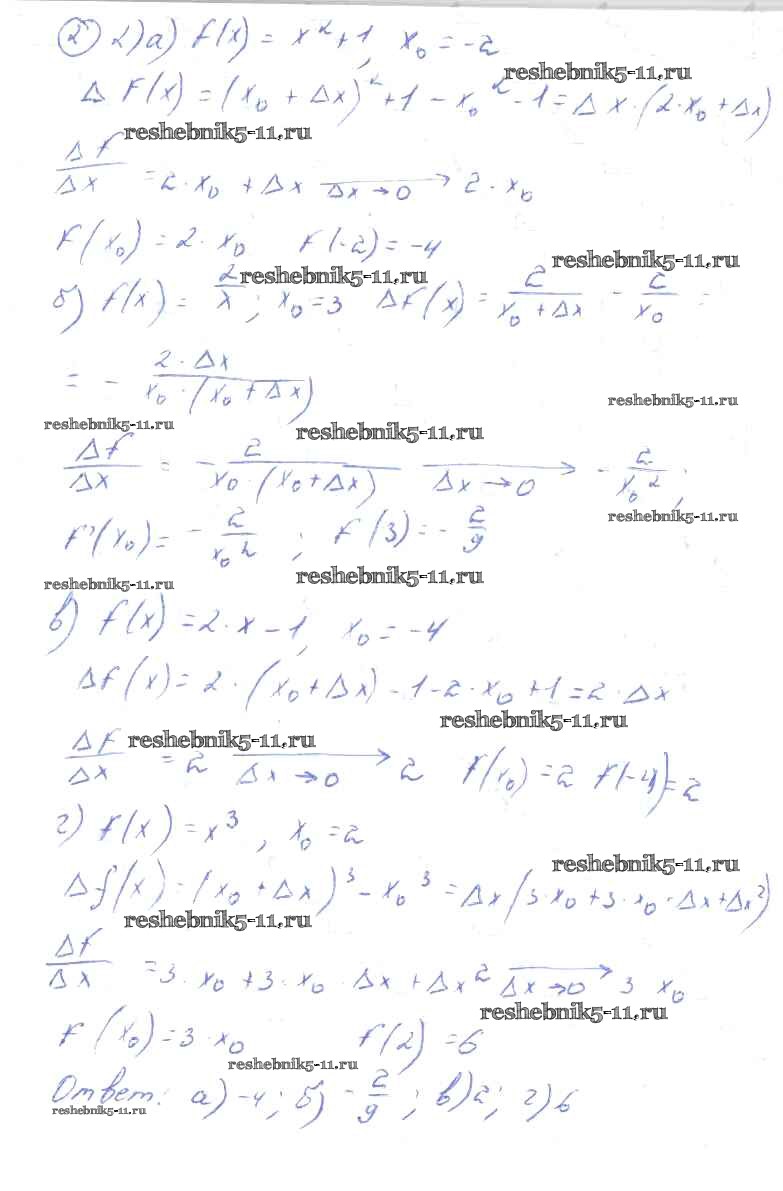 ② 2) а) f(x) = x² + 1, x₀ = -2
reshebnik5-11.ru
Δ F(x) = (x₀ + Δx)² + 1 - x₀² - 1 = Δx · (2 · x₀ + Δx)
reshebnik5-11.ru
Δf/Δx = 2 · x₀ + Δx →(Δx→0) 2 · x₀
F(x₀) = 2 · x₀ F(-2) = -4
reshebnik5-11.ru
reshebnik5-11.ru
б) f(x) = 2/x ; x₀ = 3 Δf(x) = 2/(x₀ + Δx) - 2/x₀ =
= - 2 · Δx/(x₀ · (x₀ + Δx))
reshebnik5-11.ru
reshebnik5-11.ru
reshebnik5-11.ru
Δf/Δx = - 2/(x₀ · (x₀ + Δx)) →(Δx→0) - 2/x₀² ;
reshebnik5-11.ru
F'(x₀) = - 2/x₀² ; F(3) = - 2/9
reshebnik5-11.ru
reshebnik5-11.ru
в) f(x) = 2 · x - 1, x₀ = -4
Δf(x) = 2 · (x₀ + Δx) - 1 - 2 · x₀ + 1 = 2 · Δx
reshebnik5-11.ru
reshebnik5-11.ru
Δf/Δx = 2 →(Δx→0) 2 F(x₀) = 2 F(-4) = 2
г) f(x) = x³, x₀ = 2
reshebnik5-11.ru
Δf(x) = (x₀ + Δx)³ - x₀³ = Δx(3 · x₀ + 3 · x₀ · Δx + Δx²)
reshebnik5-11.ru
Δf/Δx = 3 · x₀ + 3 · x₀ · Δx + Δx² →(Δx→0) 3 x₀
reshebnik5-11.ru
F(x₀) = 3 · x₀ F(2) = 6
reshebnik5-11.ru
Ответ: а) -4; б) - 2/9 ; в) 2; г) 6
reshebnik5-11.ru